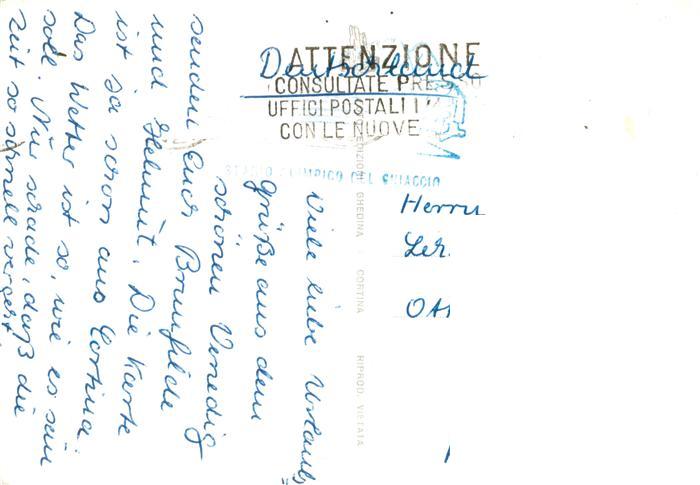 Viele liebe Urlaubs
Grüße aus dem
schönen Venedig
senden Euch Brunhilde
und Helmut. Die Karte
ist ja schon aus Cortina.
Das Wetter ist so, wie es sein
soll. Nur schade, daß die
Zeit so schnell vergeht.
ATTENZIONE
Deutschland
CONSULTATE
UFFICI POSTALI
CON LE NUOVE
STADIO OLIMPICO DEL GHIACCIO
Herrn
Ler.
EDIZIONI GHEDINA - CORTINA RIPROD. VIETATA